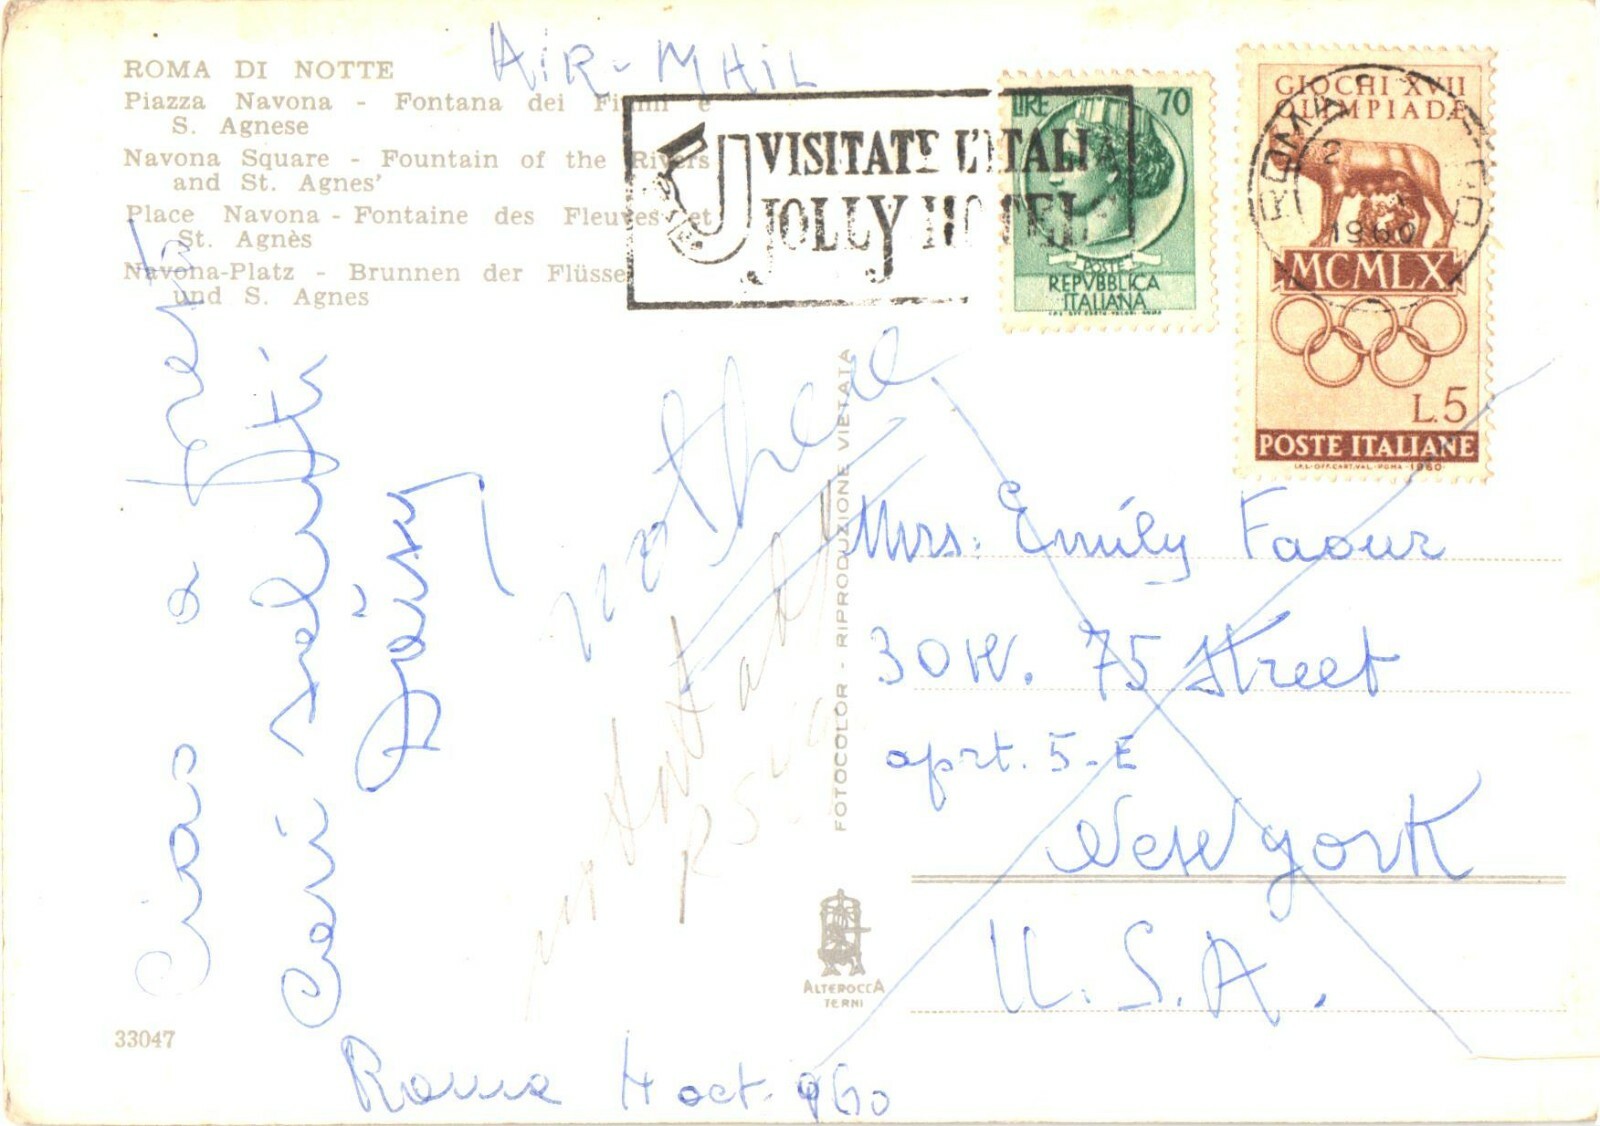 AIR-MAIL
ROMA DI NOTTE
Piazza Navona - Fontana dei Fiumi e
S. Agnese
Navona Square - Fountain of the Rivers
and St. Agnes'
Place Navona - Fontaine des Fleuves et
St. Agnès
Navona-Platz - Brunnen der Flüsse
und S. Agnes
VISITATE L'ITALIA
JOLLY HOTEL
LIRE 70
POSTE
REPVBBLICA
ITALIANA
GIOCHI XVII
OLIMPIADE
ROMA
1960
MCMLX
L.5
POSTE ITALIANE
I.P.S. OFF. CARTE-VALORI - ROMA
I.P.S. OFF. CART. VAL. - ROMA - 1960
Ciao a
Cari saluti
mother
FOTOCOLOR - RIPRODUZIONE VIETATA
Mrs. Emily Faour
30 W. 75 Street
aprt. 5-E
New York
U.S.A.
ALTEROCCA
TERNI
33047
Roma 4 oct. 960